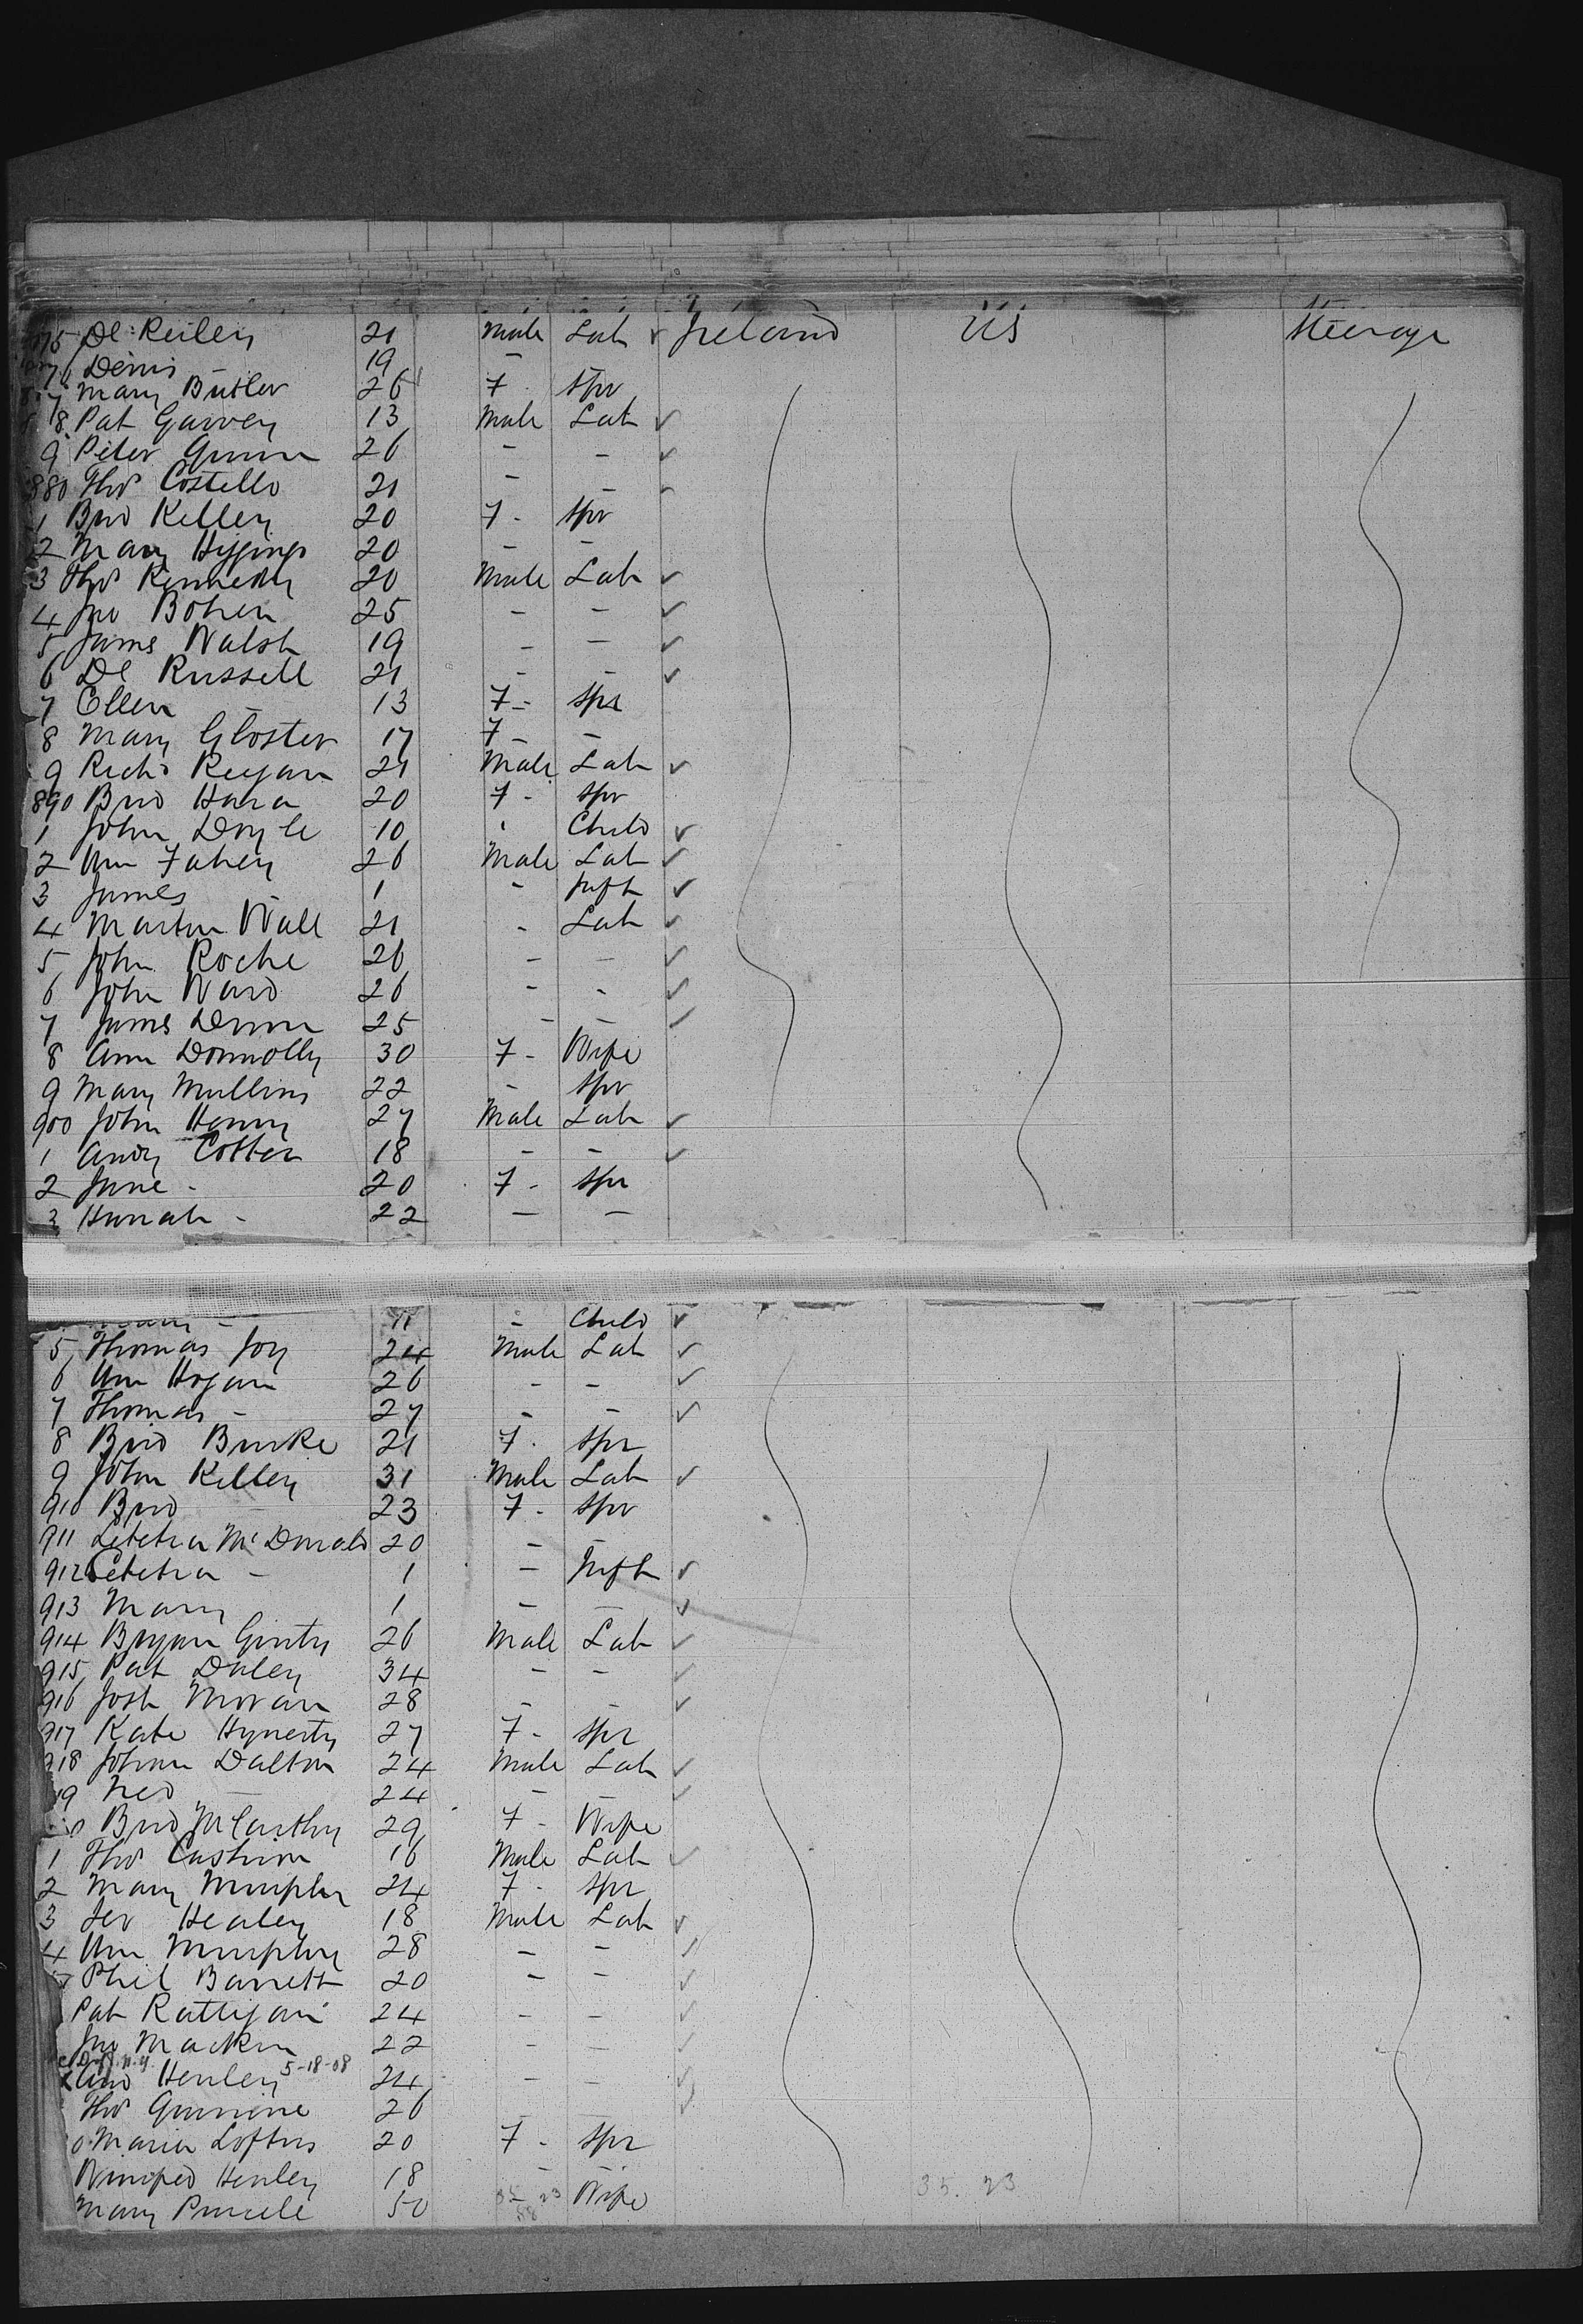 875 Dl Reiley 21 Male Lab ✓ Ireland US Steerage
876 Denis 19 -
877 Mary Butler 26 F - Spr
8 Pat Garvey 13 Male Lab ✓
9 Peter Gunn 26 - - ✓
880 Thos Costello 21 - - ✓
1 Brid Kelley 20 F - Spr
2 Mary Higgins 20 - -
3 Thos Kennedy 20 Male Lab ✓
4 Jno Bohen 25 - - ✓
5 James Walsh 19 - - ✓
6 Dl Russell 21 - - ✓
7 Ellen - 13 F - Spr
8 Mary Gloster 17 F - -
9 Richd Regan 21 Male Lab ✓
890 Brid Hara 20 F - Spr
1 John Doyle 10 - Child ✓
2 Wm Fahey 26 Male Lab ✓
3 James - 1 - Inft ✓
4 Martin Wall 21 - Lab ✓
5 John Roche 26 - - ✓
6 John Ward 26 - - ✓
7 James Dunn 25 - - ✓
8 Ann Donnolly 30 F - Wife
9 Mary Mullins 22 - Spr
900 John Henry 27 Male Lab ✓
1 Andy Cotter 18 - - ✓
2 Jane - 20 F - Spr
3 Hanah - 22 - -
- 11 - Child ✓
5 Thomas Joy 24 Male Lab ✓
6 Wm Hogan 26 - - ✓
7 Thomas - 27 - - ✓
8 Brid Burke 21 F - Spr
9 John Kelley 31 Male Lab ✓
910 Brid - 23 F - Spr
911 Letetia McDonald 20 - -
912 Letetia - 1 - Inft ✓
913 Mary 1 - - ✓
914 Bryan Ginty 26 Male Lab ✓
915 Pat Daley 34 - - ✓
916 Josh Moran 28 - - ✓
917 Kate Hynesty 27 F - Spr
918 Johan Dalton 24 Male Lab ✓
19 Ned - 24 - - ✓
Brid McCarthy 29 F - Wife
1 Thos Cashion 16 Male Lab ✓
2 Mary Murphy 24 F - Spr
3 Jer Healey 18 Male Lab ✓
4 Wm Murphy 28 - - ✓
5 Phil Barrett 20 - - ✓
Pat Rattigan 24 - - ✓
Jno Mackin 22 - - ✓
5-18-08
Henley 24 - - ✓
Thos 26 - - ✓
0 Maria Loftus 20 F - Spr
Winifred Henley 18 - -
Mary Purcele 50 - Wife 35. 23